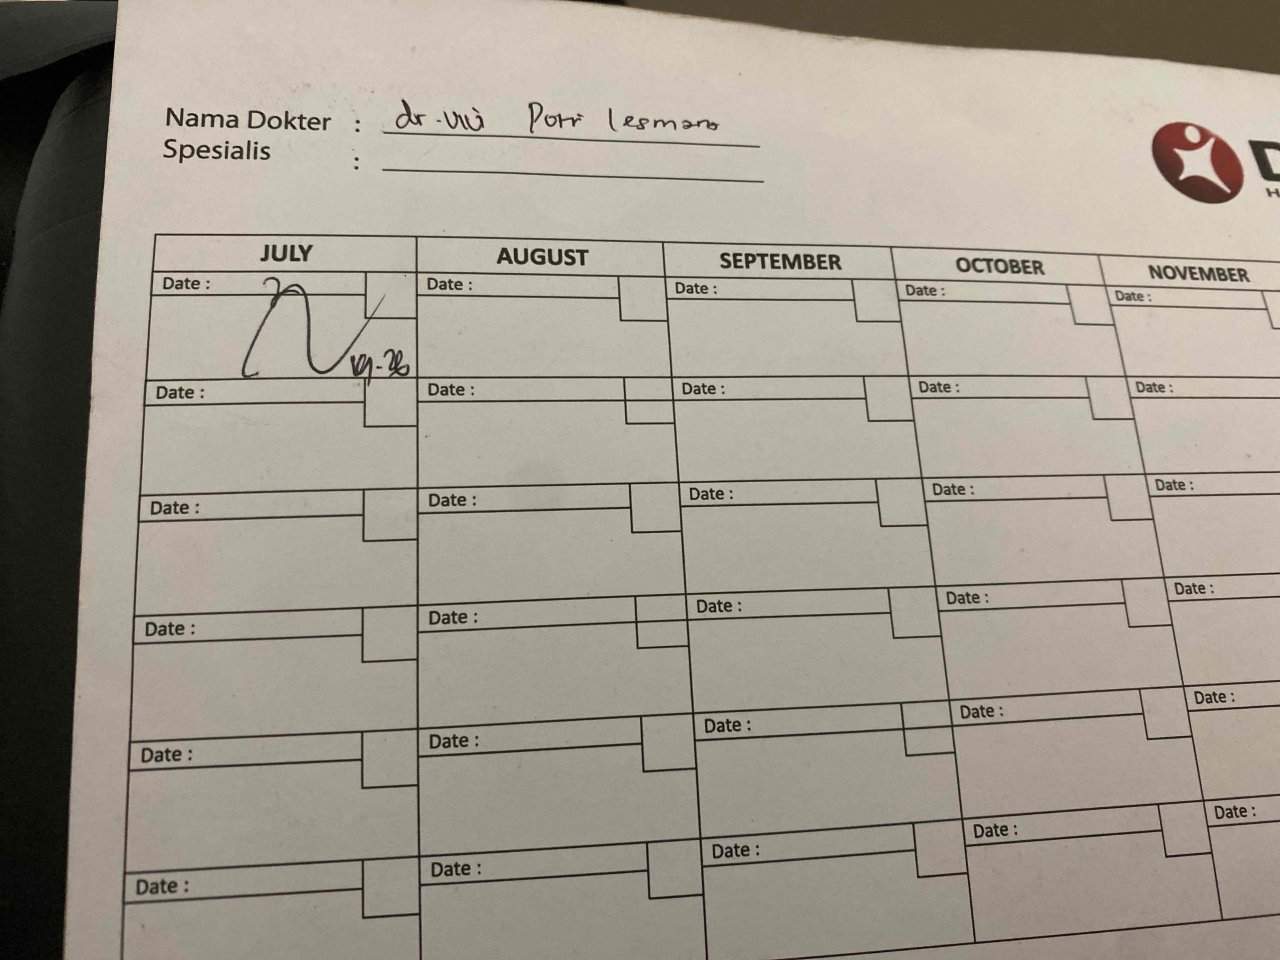 Nama Dokter : dr. Vivi Putri Lesmana
Spesialis :
JULY AUGUST SEPTEMBER OCTOBER NOVEMBER
Date : Date : Date : Date : Date :
Date : Date : Date : Date : Date :
Date : Date : Date : Date : Date :
Date : Date : Date : Date : Date :
Date : Date : Date : Date : Date :
Date : Date : Date : Date : Date :